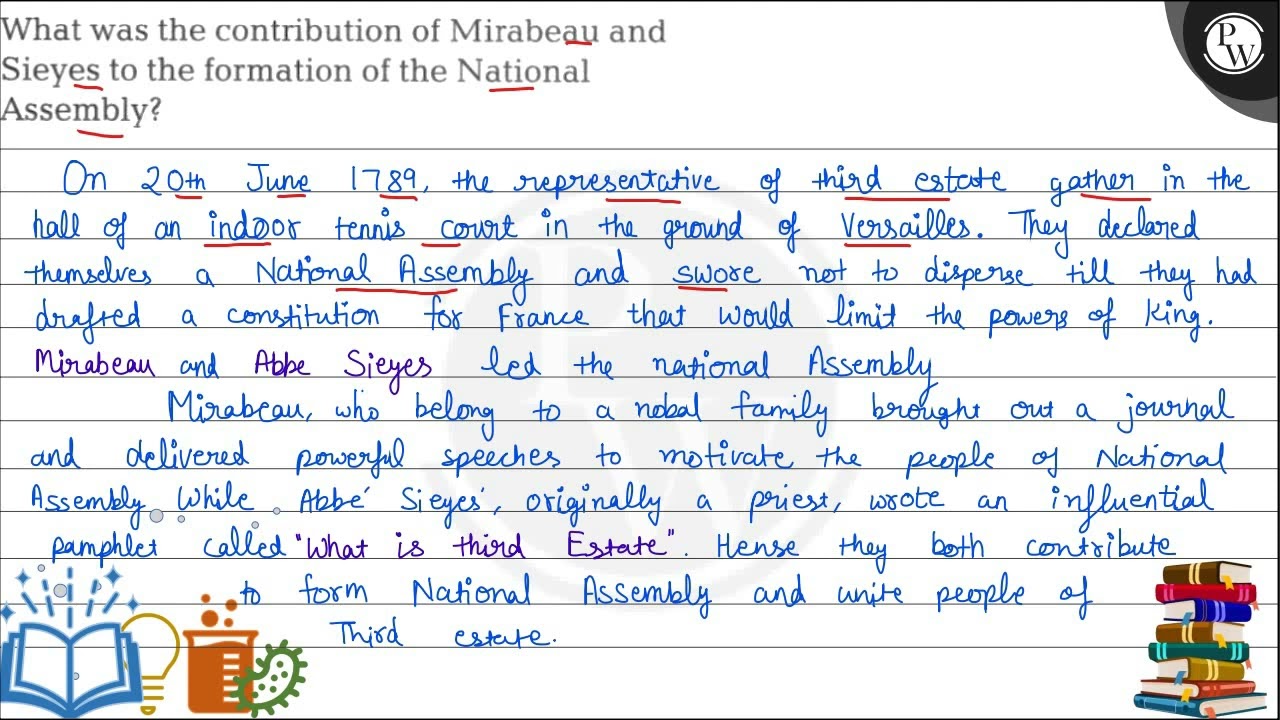 What was the contribution of Mirabeau and
Sieyes to the formation of the National
Assembly?
PW
On 20th June 1789, the representative of third estate gather in the
hall of an indoor tennis court in the ground of Versailles. They declared
themselves a National Assembly and swore not to disperse till they had
drafted a constitution for France that would limit the powers of King.
Mirabeau and Abbe Sieyes led the national Assembly
Mirabeau, who belong to a nobal family brought out a journal
and delivered powerful speeches to motivate the people of National
Assembly While Abbé Sieyes', originally a priest, wrote an influential
pamphlet called "What is third Estate". Hense they both contribute
to form National Assembly and unite people of
Third estate.